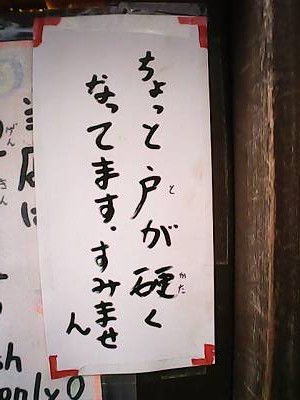 ちょっと戸が硬く
と
かた
なってます.すみません
げん
きん
sh
only